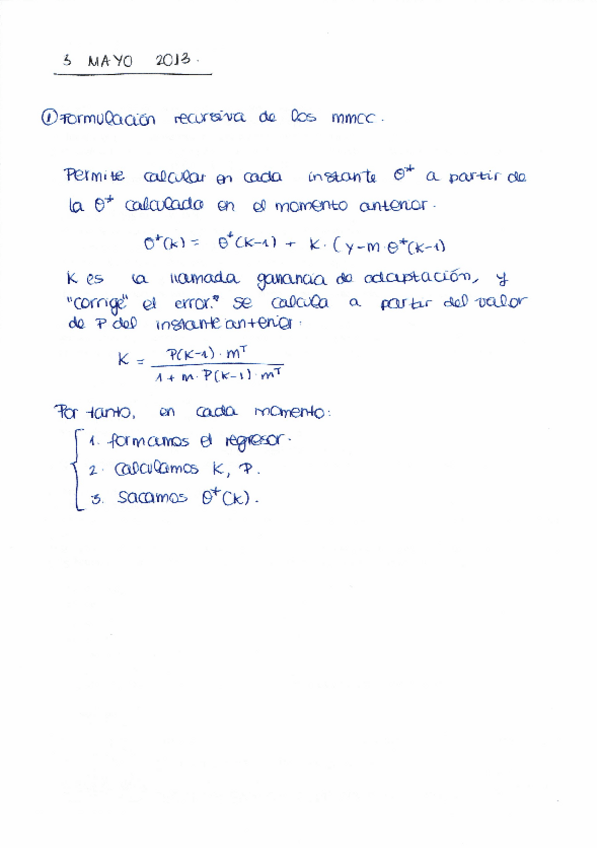 3 MAYO 2013.
① Formulación recursiva de los mmcc.
Permite calcular en cada instante θ* a partir de
la θ* calculada en el momento anterior.
θ*(k) = θ*(k-1) + K·(y-m·θ*(k-1)
K es la llamada ganancia de adaptación, y
"corrige" el error." Se calcula a partir del valor
de P del instante anterior.
K = P(k-1)·mᵀ / 1 + m·P(k-1)·mᵀ
Por tanto, en cada momento:
1. formamos el regresor.
2. Calculamos K, P.
3. Sacamos θ*(k).